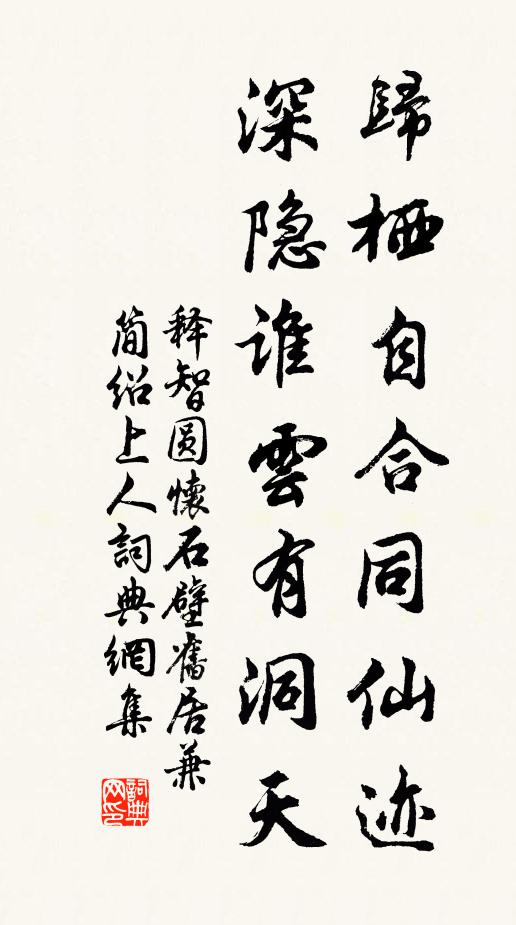 歸栖自合同仙迹
深隐誰雲有洞天
释智圆懷石壁舊居兼
简绍上人詞典網集
詞典网印